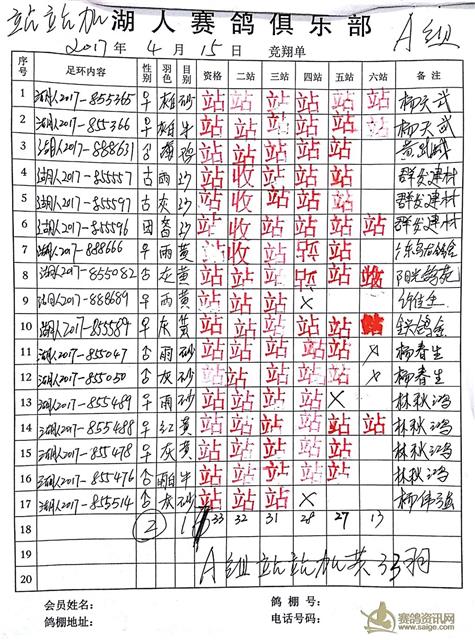 站站加 湖人赛鸽俱乐部 A组
2017年 4月 15日 竞翔单
序号 足环内容 性别 羽色 目别 资格 二站 三站 四站 五站 六站 备注
1 湖人2017-855365 早 雨 砂 站 站 站 站 站 站 杨天武
2 湖人2017-855366 早 牛 站 站 站 站 站 站 杨天武
3 湖人2017-888631 站 站 站 站 站
4 湖人2017-855557 雨 沙 站 收 站 站 站 群发建材
5 湖人2017-855597 灰 沙 站 收 站 站 站 群发建材
6 湖人2017-855596 沙 站 收 站 站 站 站 群发建材
7 湖人2017-888666 早 雨 黄 站 收 站 站 站
8 湖人2017-8550082 灰 黄 站 站 站 站 站 站
9 湖人2017-888689 早 雨 黄 站 站 站 ×
10 湖人2017-855589 早 灰 黄 站 站 站 站 站 站
11 湖人2017-855047 雨 砂 站 站 站 站 站 × 杨春生
12 湖人2017-855050 灰 砂 站 站 站 站 站 × 杨春生
13 湖人2017-855489 早 雨 砂 站 站 站 站 × 林秋鸿
14 湖人2017-855488 早 红 黄 站 站 站 站 站 站 林秋鸿
15 湖人2017-855478 早 灰 黄 站 站 站 站 站 林秋鸿
16 湖人2017-855476 牛 站 站 站 站 站 林秋鸿
17 湖人2017-855514 灰 砂 站 站 站 × 杨伟强
18 2 1 33 32 31 28 27 13
19 A组站站加共33羽
20
会员姓名: 鸽棚号:
鸽棚地址: 电话号码:
赛鸽资讯网
www.saige.com